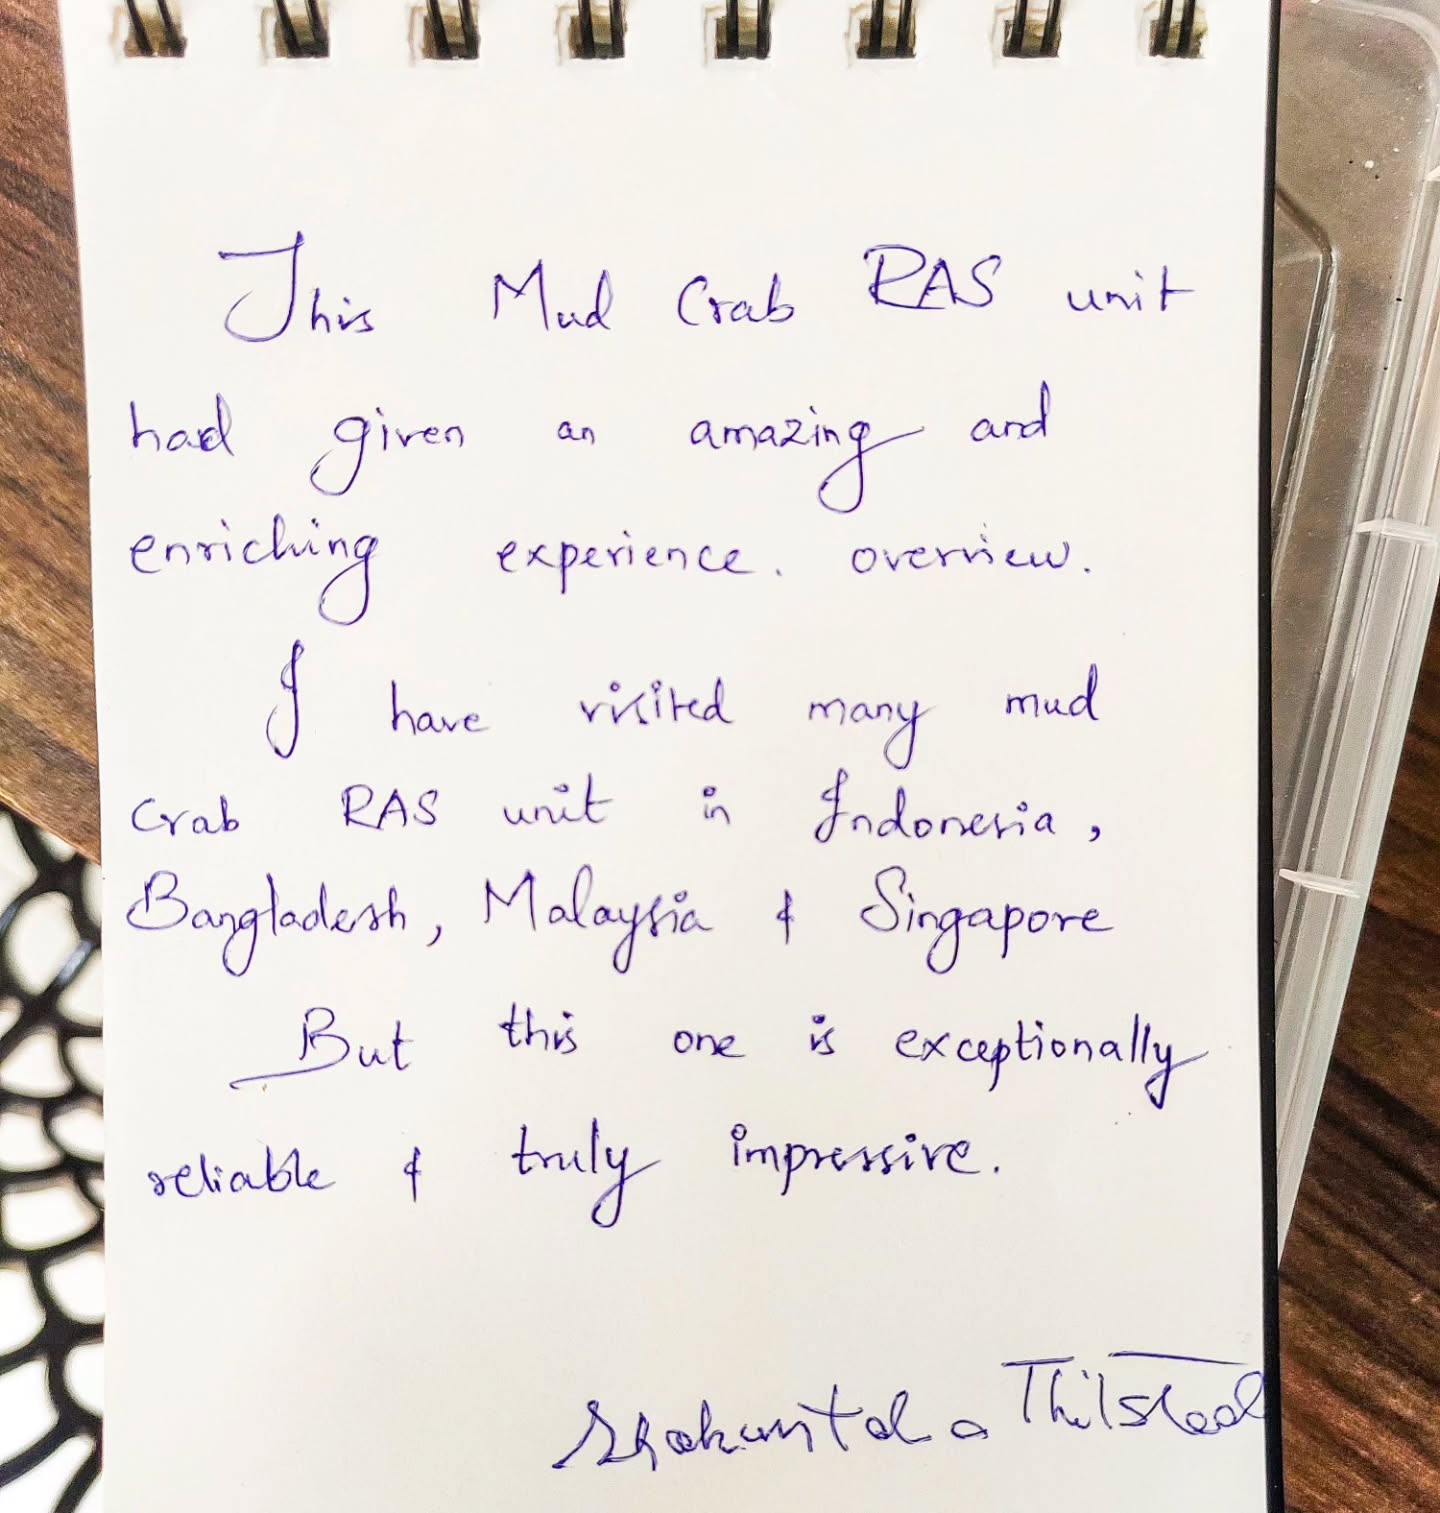 This Mud Crab RAS unit
had given an amazing and
enriching experience. overview.
I have visited many mud
Crab RAS unit in Indonesia,
Bangladesh, Malaysia & Singapore
But this one is exceptionally
reliable & truly impressive.
Shakuntala Thilsted